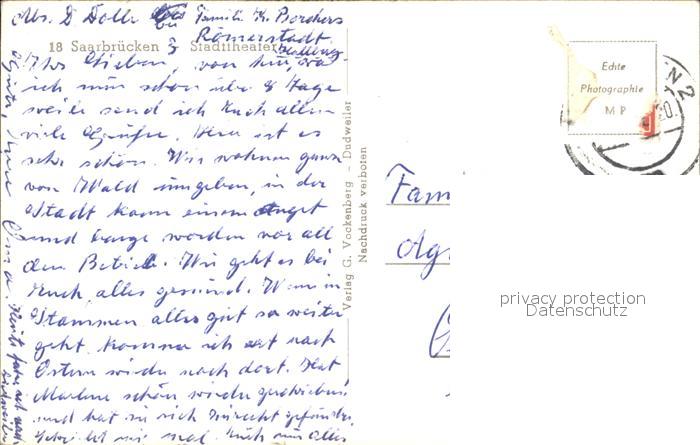 Abs. D Dolle bei Familie K. Borchers
Römerstadt
18 Saarbrücken Stadttheater
Ihr Lieben, von hier, wo
ich nun schon über 8 Tage
weile send ich Euch allen
viele Grüße. Hier ist es
sehr schön. Wir wohnen ganz
von Wald umgeben, in der
Stadt kann einem Angst
und bange werden vor all
dem Betrieb. Wie geht es bei
Euch, alles gesund. Wenn in
Stammen alles gut so weiter
geht, komme ich erst nach
Ostern wieder nach dort. Hat
Marlene schon wieder geschrieben,
und hat sie sich zurecht gefunden,
Euch nun alles
Gute, Eure Oma.
Verlag G. Vockenberg - Dudweiler
Nachdruck verboten
Echte
Photographie
M P
Fam
privacy protection
Datenschutz